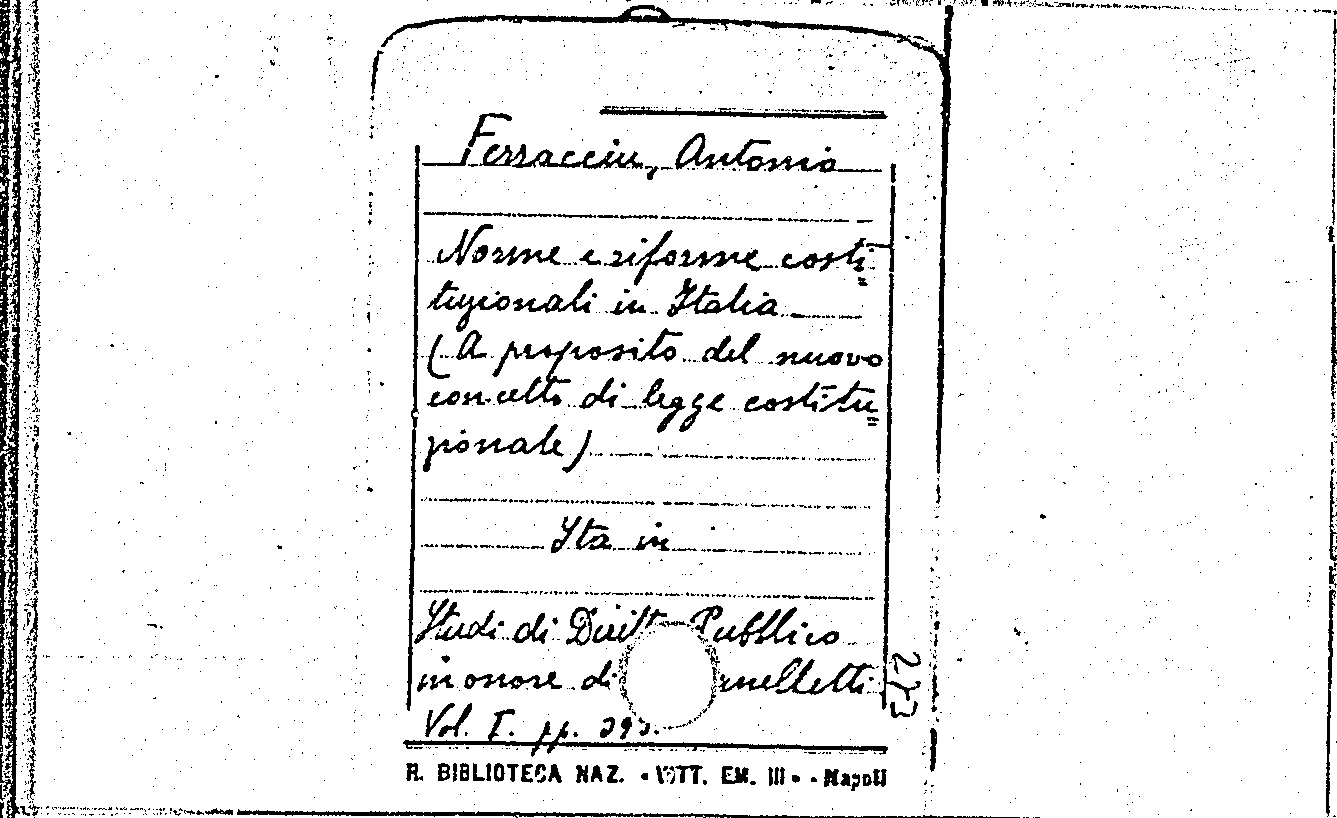 Ferracciu, Antonio
Norme e riforme costi=
tuzionali in Italia
(A proposito del nuovo
concetto di legge costitu=
zionale)
Sta in
Studi di Diritto Pubblico
in onore di
Vol. I. pp.
R. BIBLIOTECA NAZ. "VITT. EM. III" - Napoli